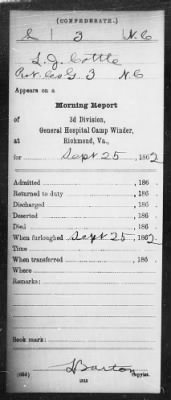 (CONFEDERATE.)
G | 3 | N.C.
L. J. Cottle
Pvt. Co. G. 3 N.C.
Appears on a
Morning Report
of 3d Division,
General Hospital Camp Winder,
at Richmond, Va.,
for Sept 25, 1862
Admitted , 186
Returned to duty , 186
Discharged , 186
Deserted , 186
Died , 186
When furloughed Sept 25, 1862
Time
When transferred , 186
Where
Remarks:
Book mark:
Barton
Copyist.